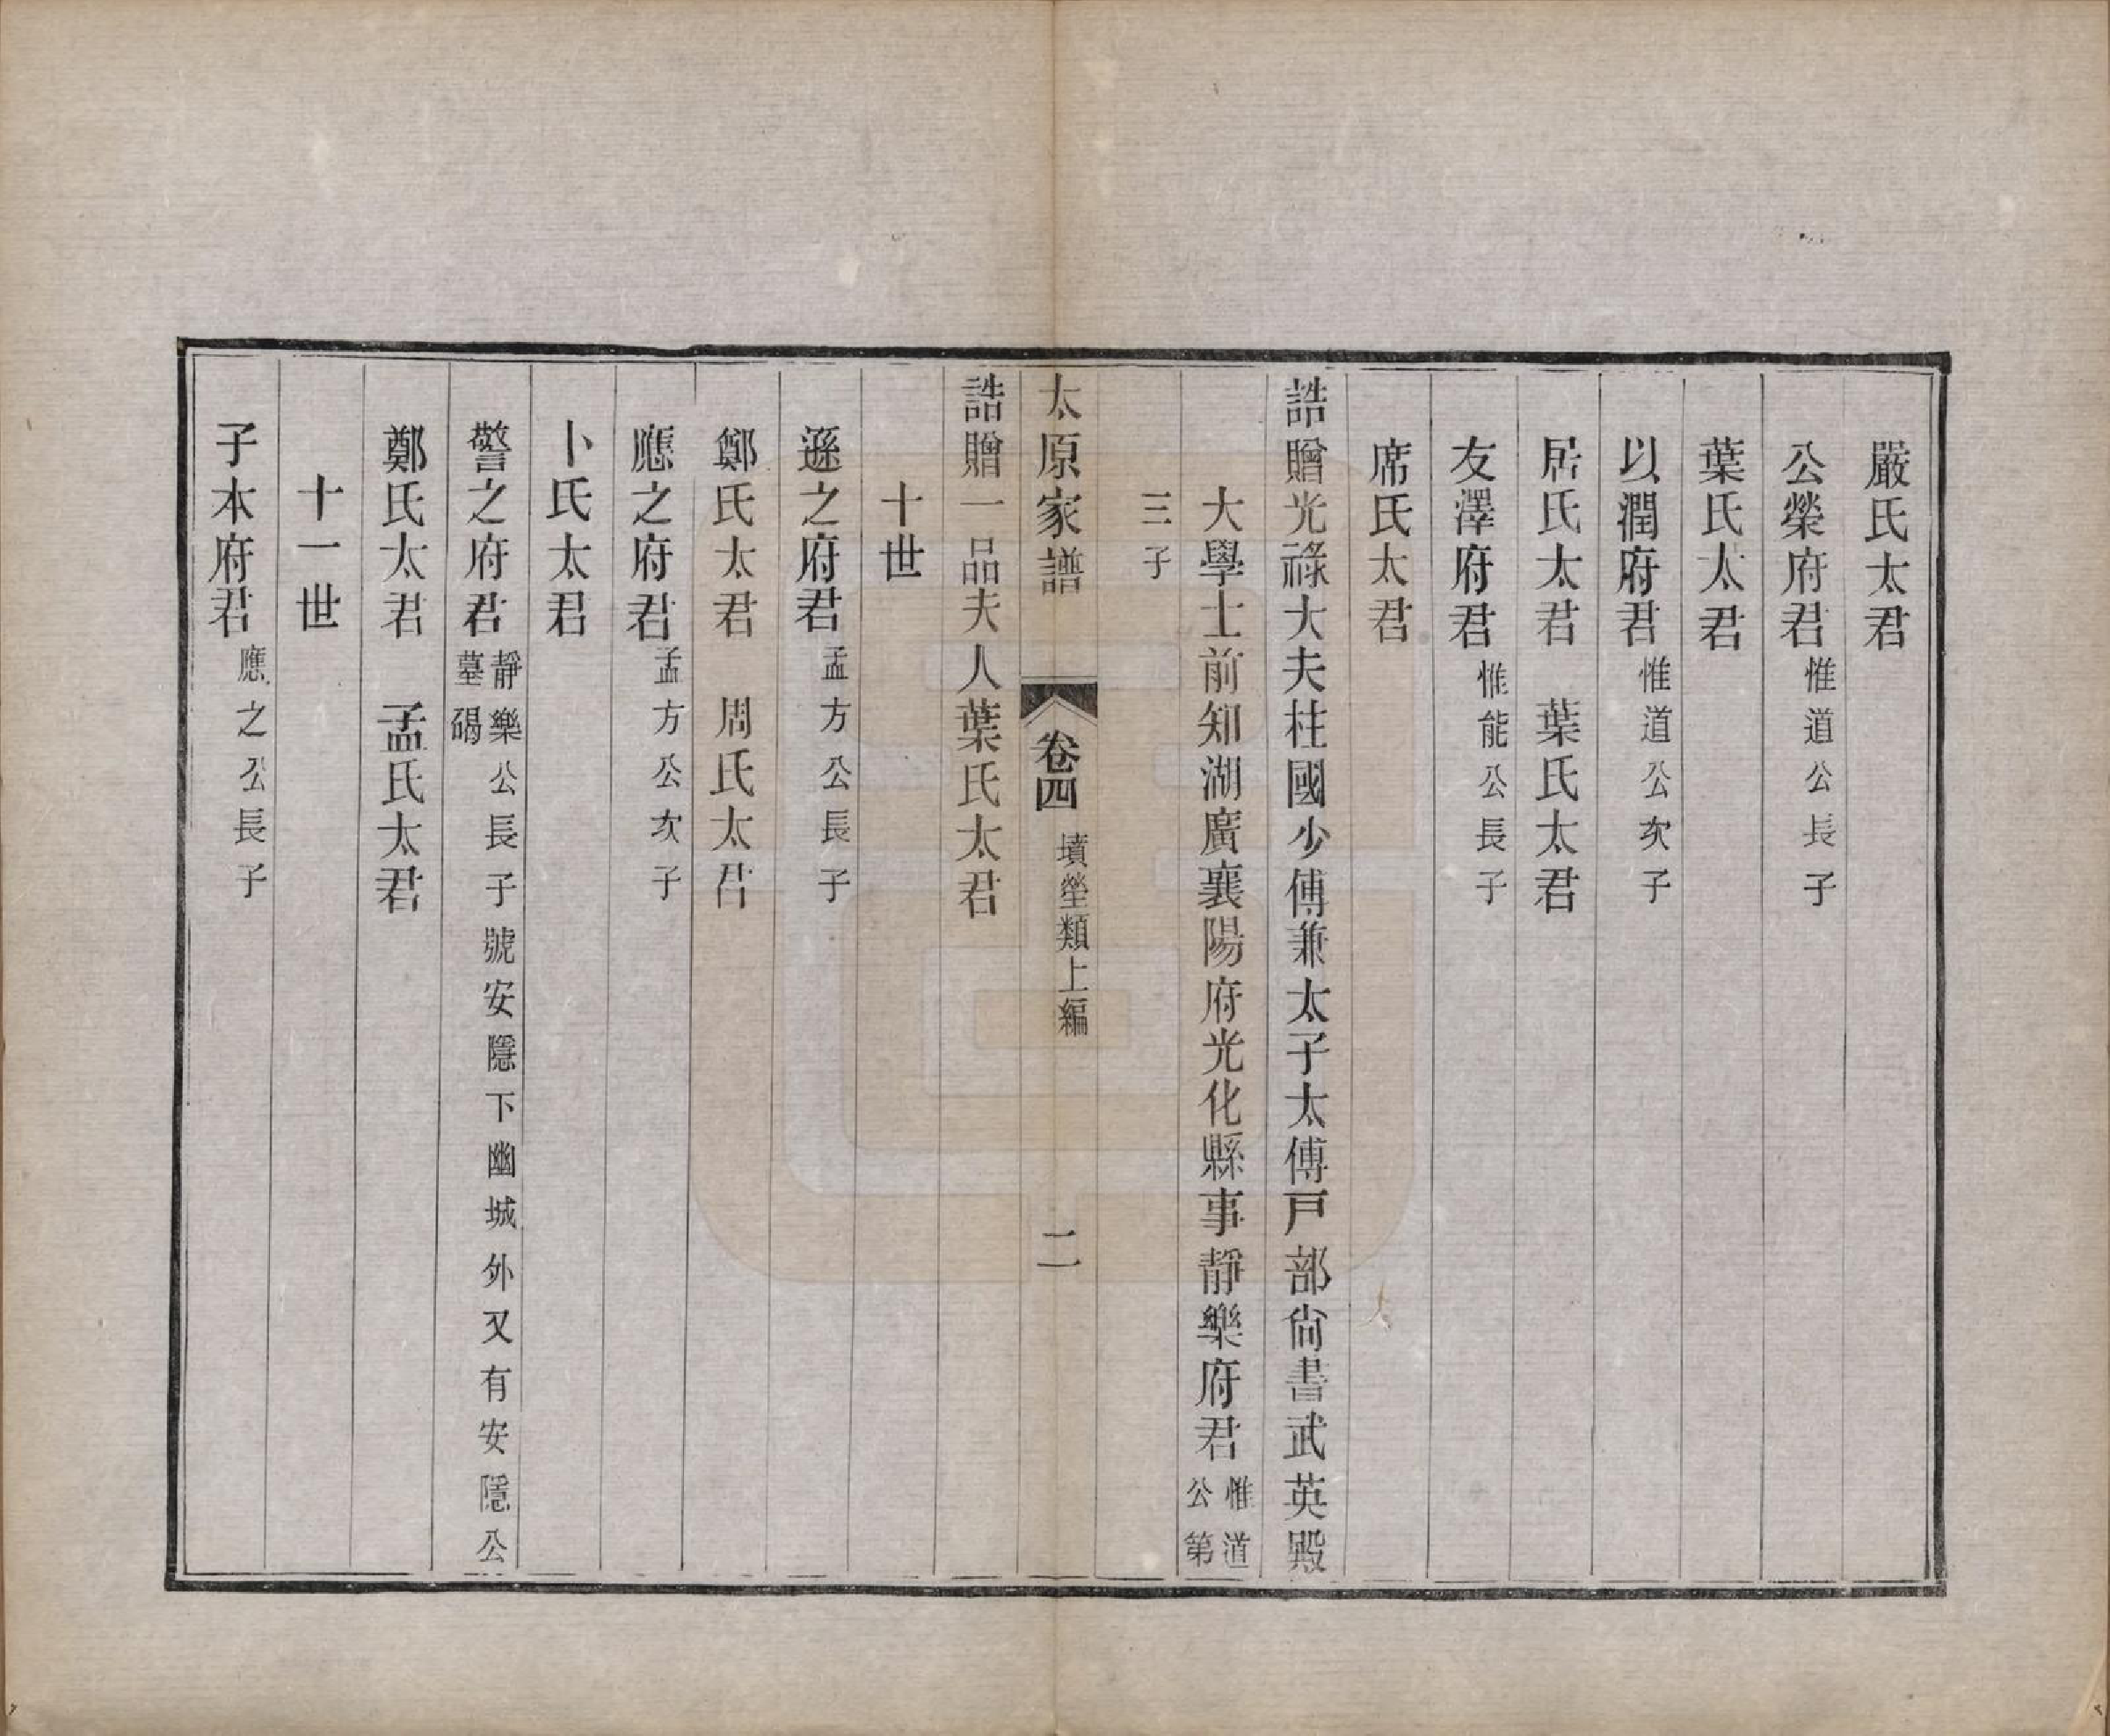 嚴氏太君
公榮府君惟道公長子
葉氏太君
以潤府君惟道公次子
居氏太君　葉氏太君
友澤府君惟能公長子
席氏太君
誥贈光祿大夫柱國少傅兼太子太傅戸部尙書武英殿
大學士前知湖廣襄陽府光化縣事靜樂府君惟道公第
三子
太原家譜　卷四　墳塋類上編　二
誥贈一品夫人葉氏太君
十世
遜之府君孟方公長子
鄭氏太君　周氏太君
應之府君孟方公次子
卜氏太君
警之府君靜樂公長子號安隱下幽城外又有安隱公墓碣
鄭氏太君　孟氏太君
十一世
子本府君應之公長子